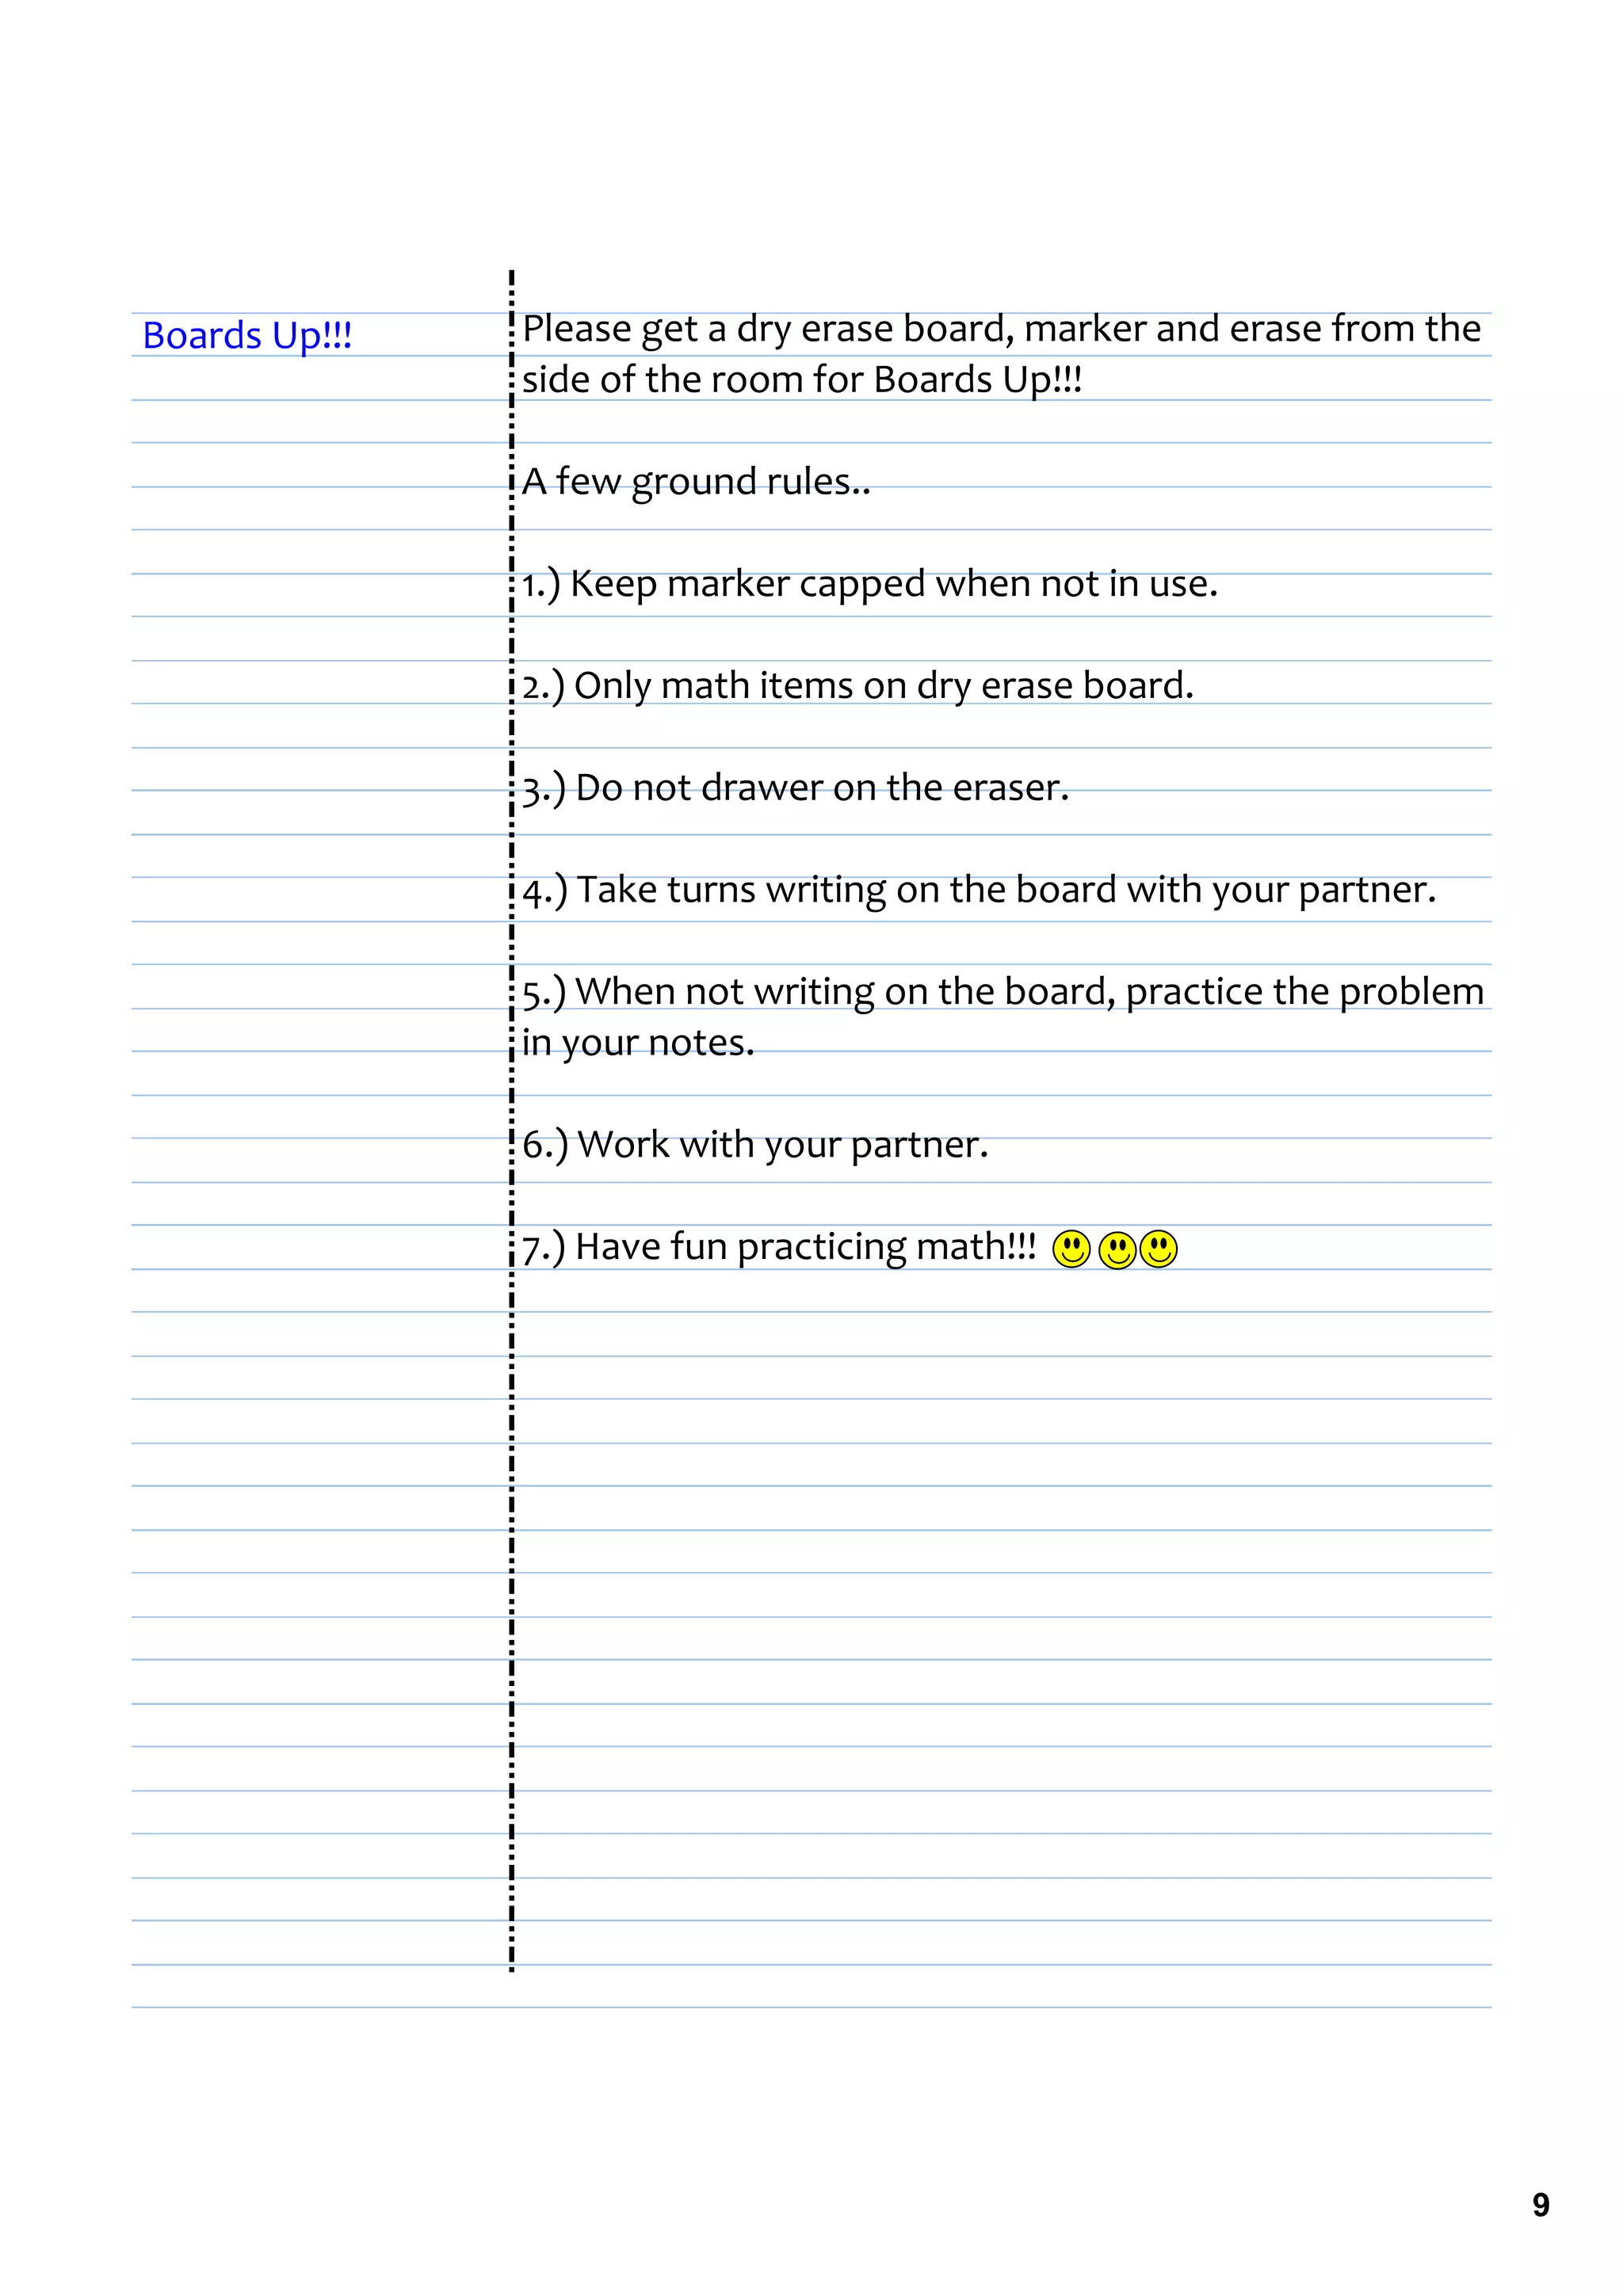 Boards Up!!!
Please get a dry erase board, marker and erase from the
side of the room for Boards Up!!!
A few ground rules..
1.) Keep marker capped when not in use.
2.) Only math items on dry erase board.
3.) Do not drawer on the eraser.
4.) Take turns writing on the board with your partner.
5.) When not writing on the board, practice the problem
in your notes.
6.) Work with your partner.
7.) Have fun practicing math!!!
9